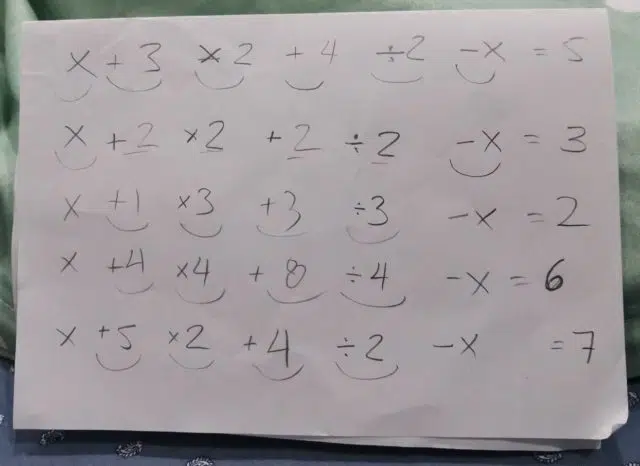 x + 3 × 2 + 4 ÷ 2 - x = 5
x + 2 × 2 + 2 ÷ 2 - x = 3
x + 1 × 3 + 3 ÷ 3 - x = 2
x + 4 × 4 + 8 ÷ 4 - x = 6
x + 5 × 2 + 4 ÷ 2 - x = 7